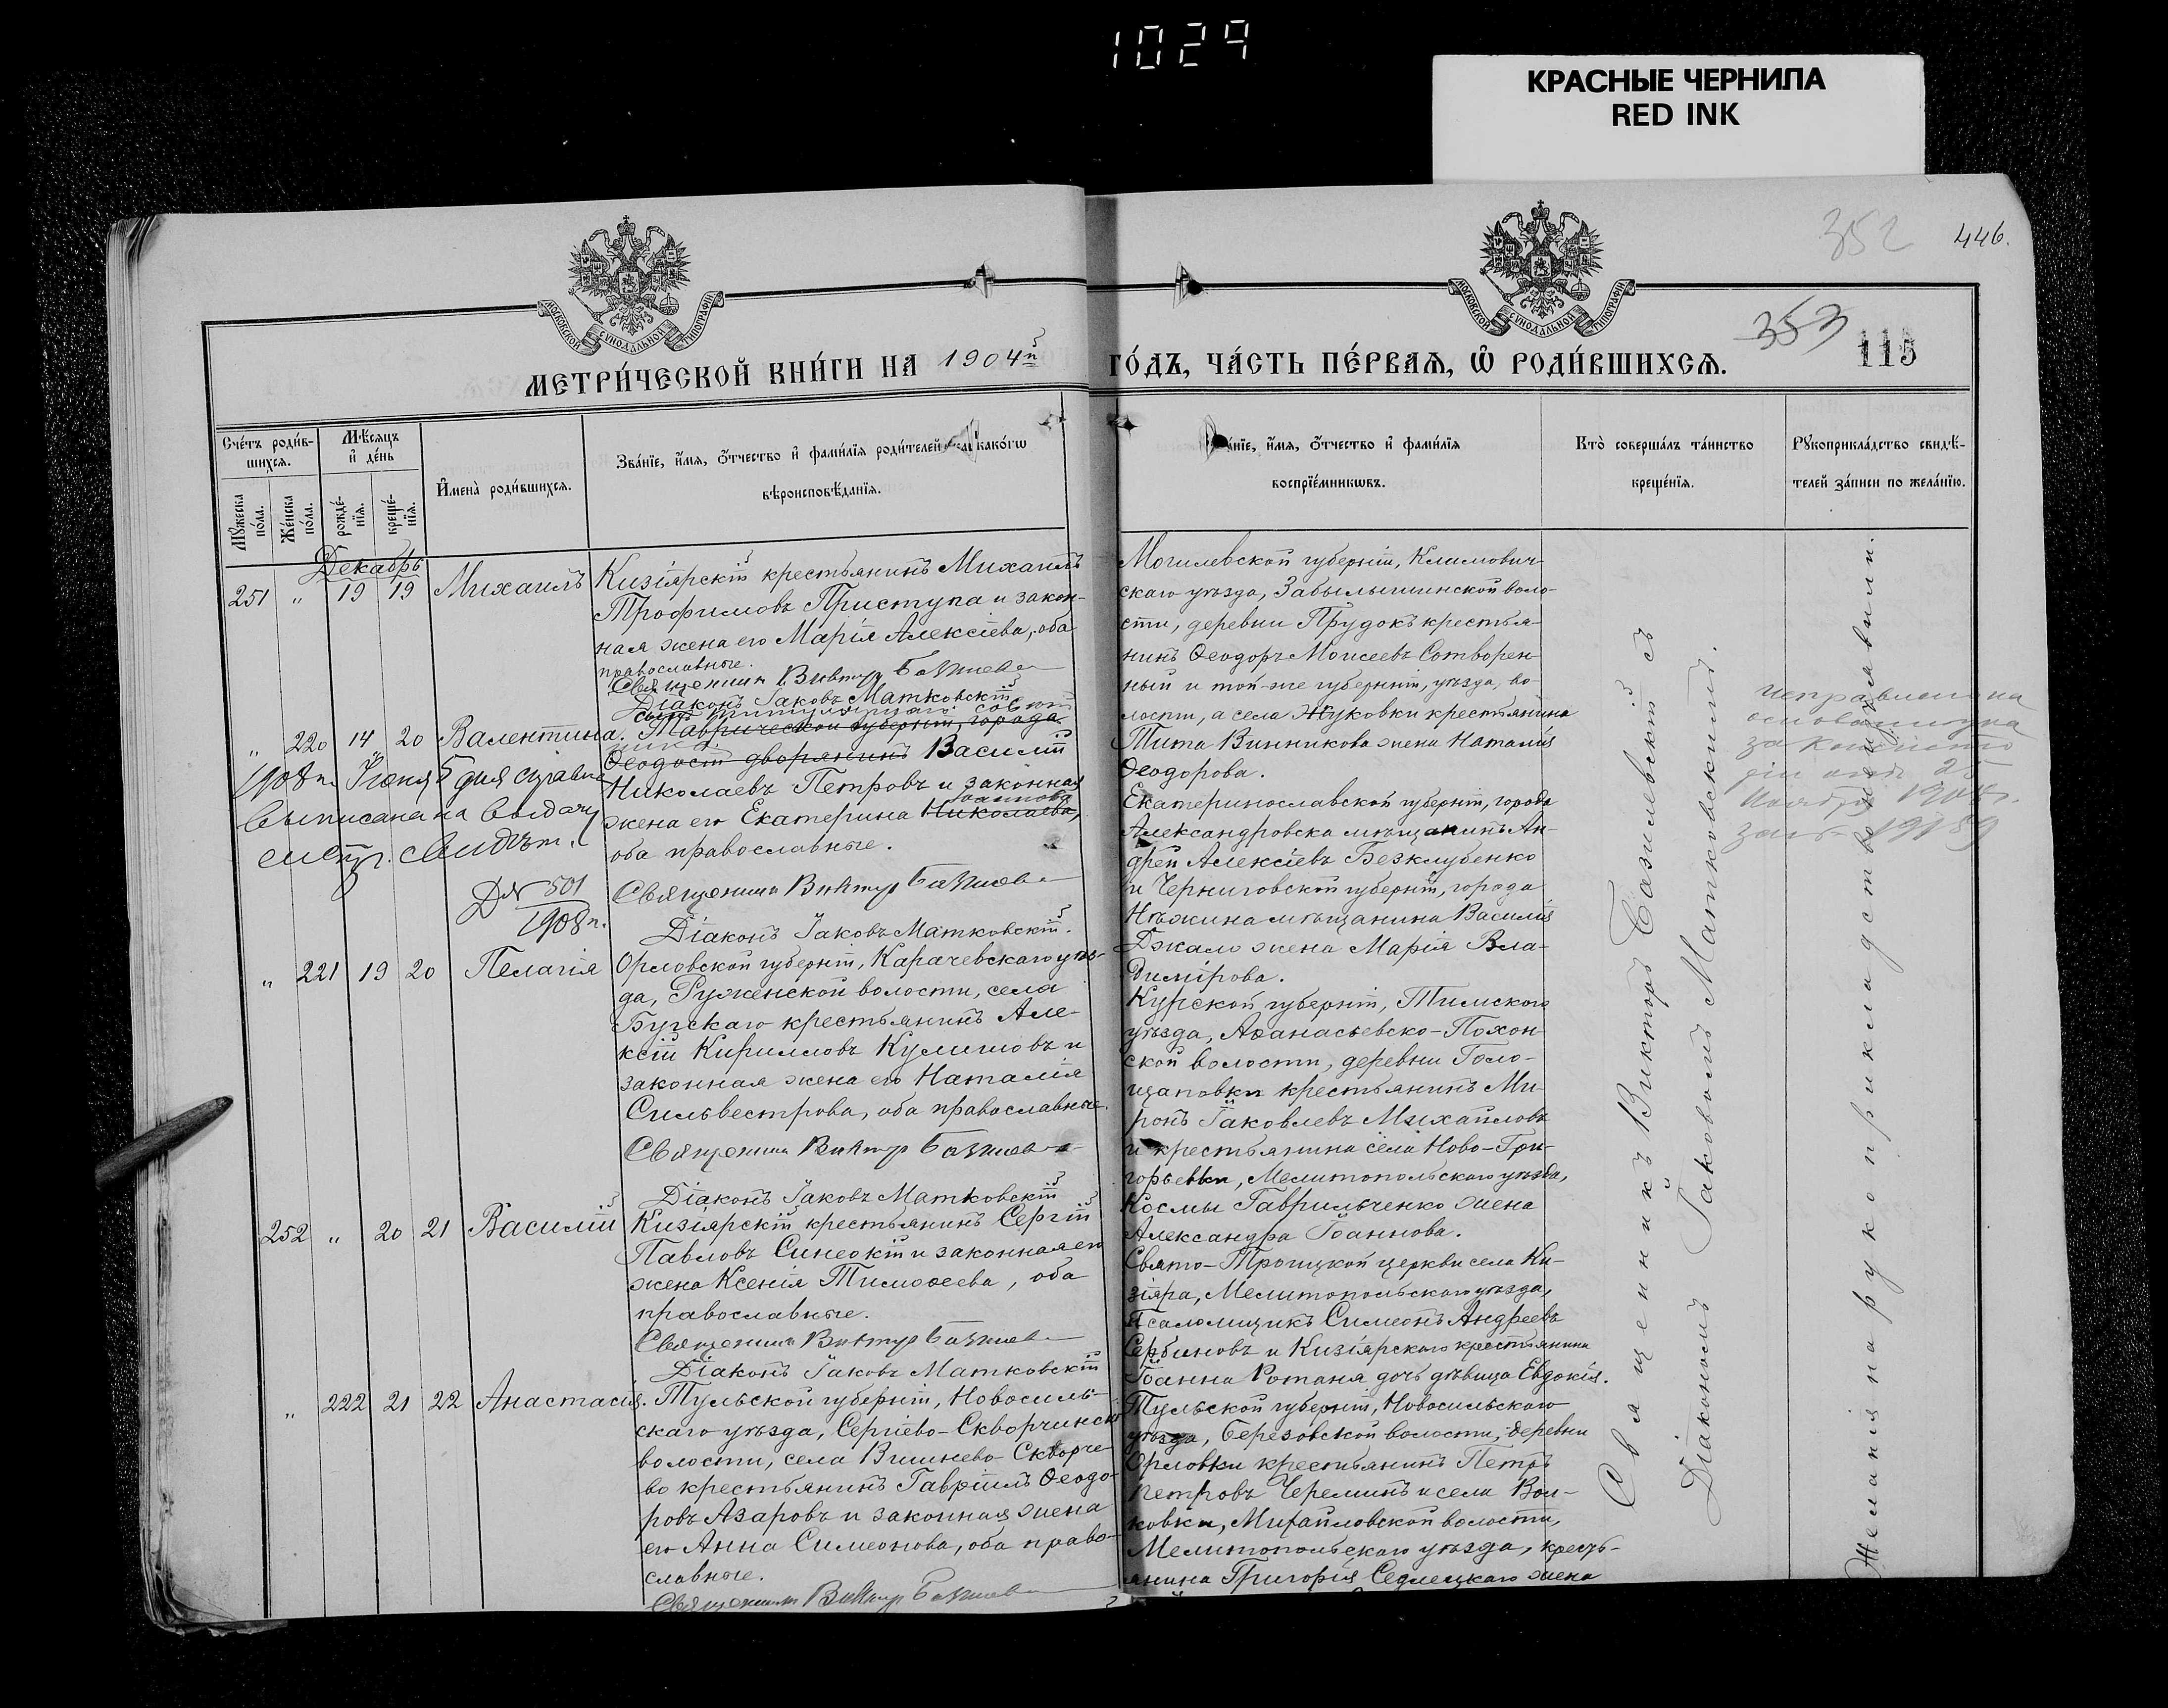 1029
КРАСНЫЕ ЧЕРНИЛА
RED INK
352
446.
353
115
МОСКОВСКОЙ СѴНОДАЛЬНОЙ ТИПОГРАФІИ
МОСКОВСКОЙ СѴНОДАЛЬНОЙ ТИПОГРАФІИ
МЕТРИ́ЧЕСКОЙ КНИ́ГИ НА 1904й
ГО́ДЪ, ЧА́СТЬ ПЕ́РВАѦ, Ѡ҆ РОДИ́ВШИХСѦ.
Сче́тъ роди́в-
шихсѧ.
Мꙋ́жеска по́ла.
Же́нска по́ла.
Мѣ́сѧцъ и҆ де́нь
рожде́-нїѧ.
креще́-нїѧ.
И҆мена̀ роди́вшихсѧ.
Зва́нїе, и҆́мѧ, ѻ҆́тчество и҆ фами́лїѧ роди́телей како́гѡ
вѣроисповѣ́данїѧ.
а́нїе, и҆́мѧ, ѻ҆́тчество и҆ фами́лїѧ
воспрїе́мникѡвъ.
Кто̀ соверша́лъ та́инство
креще́нїѧ.
Рꙋкоприкла́дство свидѣ́-
телей за́писи по жела́нїю.
Декабрь
251 „ 19 19 Михаилъ
Кизіярскій крестьянинъ Михаилъ
Трофимовъ Приступа и закон-
ная жена его Марія Алексіева, оба
православные.
Священникъ Викторъ Базилев
Діаконъ Іаковъ Матковскій
Могилевской губерніи, Климович-
скаго уѣзда, Забылышинской воло-
сти, деревни Прудокъ крестья-
нинъ Ѳеодоръ Моисеевъ Сотворен-
ный и той-же губерніи, уѣзда, во-
лости, а села Жуковки крестьянина
Тита Винникова жена Наталія
Ѳеодорова.
„ 220 14 20 Валентина.
Таврической губерніи, города
Ѳеодосіи дворянинъ Василій
Николаевъ Петровъ и законная
жена его Екатерина Николаева, Іоаннова
оба православные.
Священникъ Викторъ Базилев
Діаконъ Іаковъ Матковскій.
1908 г. Іюня 5 дня справка
выписана на выдачу
метр. свидѣт.
Д№ 501
1908 г.
Екатеринославской губерніи, города
Александровска мѣщанинъ Ан-
дрей Алексіевъ Безклубенко
и Черниговской губерніи, города
Нѣжина мѣщанина Василія
Джало жена Марія Вла-
димірова.
Исправлено на
основаніи указа
Консисторіи отъ 25
Ноября
„ 221 19 20 Пелагія
Орловской губерніи, Карачевскаго уѣз-
да, Руженской волости, села
Бугскаго крестьянинъ Але-
ксій Кирилловъ Кулешовъ и
законная жена его Наталія
Сильвестрова, оба православные.
Священникъ Викторъ Базилев
Діаконъ Іаковъ Матковскій
Курской губерніи, Тимскаго
уѣзда, Аѳанасьевско-Похон-
ской волости, деревни Голо-
щаповки крестьянинъ Ми-
ронъ Іаковлевъ Михайловъ
и крестьянина села Ново-Гри-
горьевки, Мелитопольскаго уѣзда,
Космы Гаврильченко жена
Александра Іоаннова.
252 „ 20 21 Василій
Кизіярскій крестьянинъ Сергій
Павловъ Синеокій и законная его
жена Ксенія Тимоѳеева, оба
православные.
Священникъ Викторъ Базилев
Діаконъ Іаковъ Матковскій
Свято-Троицкой церкви села Ки-
зіяра, Мелитопольскаго уѣзда,
псаломщикъ Симеонъ Андреевъ
Сербиновъ и Кизіярскаго крестьянина
Іоанна Романа дочь дѣвица Евдокія.
„ 222 21 22 Анастасія.
Тульской губерніи, Новосиль-
скаго уѣзда, Сергіево-Скворчинской
волости, села Вишнево-Скворче-
во крестьянинъ Гавріилъ Ѳеодо-
ровъ Азаровъ и законная жена
его Анна Симеонова, оба право-
славные.
Священникъ Викторъ Базилев
Тульской губерніи, Новосильскаго
уѣзда, Березовской волости, деревни
Орловки крестьянинъ Петръ
Петровъ Черемшнъ и села Вол-
ковки, Михайловской волости,
Мелитопольскаго уѣзда, кресть-
янина Григорія Седлецкаго жена
Священникъ Викторъ Базилевскій съ
Діакономъ Іаковомъ Матковскимъ.
Желанія на рукоприкладство не изъявили.